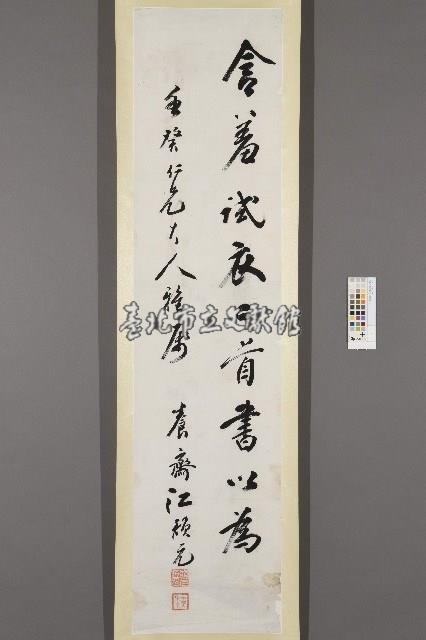 含羞試衣 首書以為
壬癸仁兄大人雅屬
養齋江頹元
臺北市立文獻館